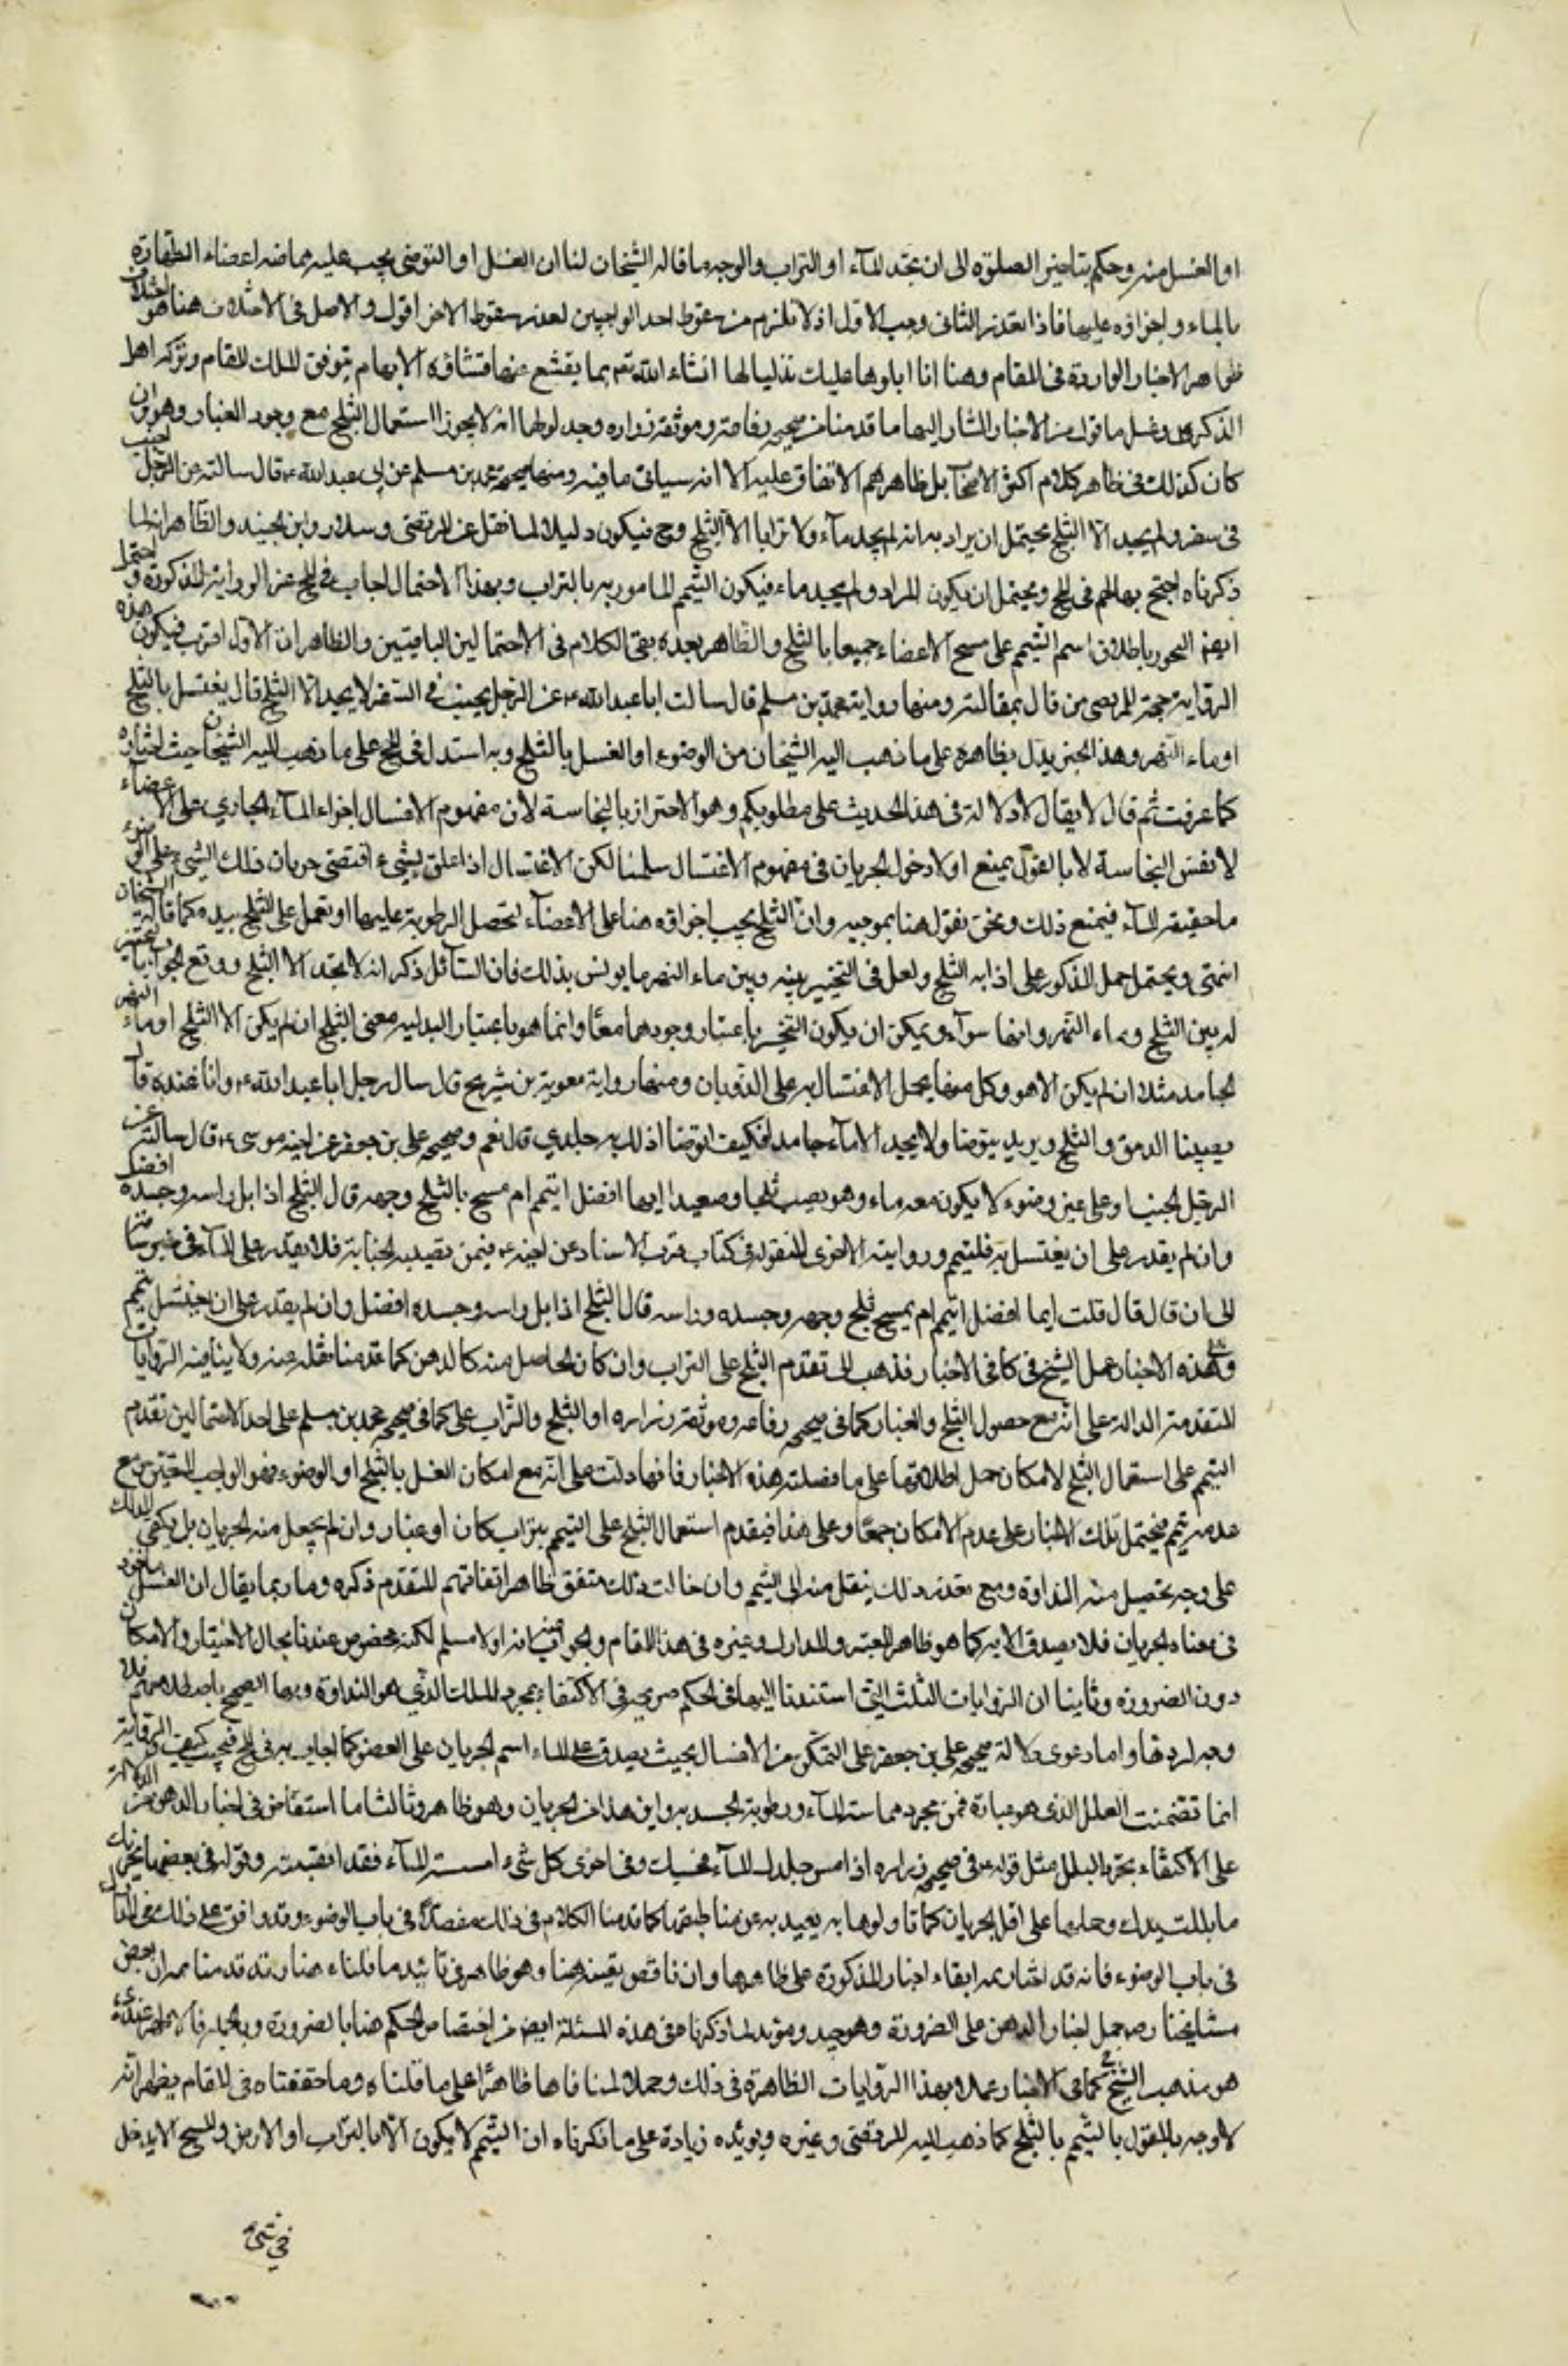 او الغسل منه وحكم بتاخير الصلوة الى ان يجد الماء او التراب والوجه ما قاله الشيخان لنا ان الغسل او التوضى يجب عليه مماسة اعضاء الطهارة
بالماء واجراؤه عليها فاذا تعذر الثانى وجب الاول اذ لا يلزم من سقوط احد الواجبين لعذر سقوط الاخر اقول والاصل فى الاختلاف هنا هو اختلاف
ظواهر الاخبار الواردة فى المقام وها انا اتلوها عليك مذيلا لها انشاء الله تعه بما يقشع عنها غشاوة الابهام بتوفيق الملك العلام وبركة اهل
الذكر ع فنقول من الاخبار المشار اليها ما قدمنا من صحيحة رفاعة وموثقة زراره وجد لولها انه لا يجوز استعمال الثلج مع وجود الغبار وهو وان
كان كذلك فى ظاهر كلام اكثر الاصحاب بل ظاهرهم الاتفاق عليه الا انه سياتى ما فيه ومنها صحيحة محمد بن مسلم عن ابى عبد الله ع قال سالته عن الرجل يجنب
فى سفر ولم يجد الا الثلج يحتمل ان يراد به انه لم يجد ماء ولا ترابا الا الثلج وح فيكون دليلا لما نقل عن المرتضى وسلار وابن الجنيد والظاهر انه لما
ذكرناه احتج بها لهم فى لف ويحتمل ان يكون المراد ولم يجد ماء فيكون التيمم المامور به بالتراب وبهذا الاحتمال اجاب فى لف عن الرواية المذكورة واحتمل
ايضا التجوز باطلاق اسم التيمم على مسح الاعضاء جميعا بالثلج والظاهر بعده بقى الكلام فى الاحتمالين الباقيين والظاهر ان الاول اقرب فيكون هذه
الرواية حجة للمرتضى ومن قال بمقالته ومنها رواية محمد بن مسلم قال سالت ابا عبد الله ع عن الرجل يجنب فى السفر لا يجد الا الثلج قال يغتسل بالثلج
او ماء النهر وهذا الخبر يدل بظاهره على ما ذهب اليه الشيخان من الوضوء او الغسل بالثلج وبه استدل فى لف على ما ذهب اليه الشيخان حيث اختاره
كما عرفت ثم قال لا يقال لا دلالة فى هذا الحديث على مطلوبكم وهو الاجتزاء بالمماسة لان مفهوم الاغتسال اجراء الماء الجارى على الاعضاء
لا نفس المماسة لانا نقول نمنع اولا دخول الجريان فى مفهوم الاغتسال سلمنا لكن الاغتسال اذا علق بشىء اقتضى جريان ذلك الشىء على العضو
ما حقيقة الماء فيمنع ذلك ونحن نقول هنا بموجبه وان الثلج يجب اجراؤه هنا على الاعضاء لتحصل الرطوبة عليها او يعمل على الثلج بيده كما قاله الشيخان
انتهى ويحتمل حمل المذكور على اذابة الثلج ولعل فى التخيير بينه وبين ماء النهر ما يونس بذلك فان السائل ذكر انه لا يجد الا الثلج ووقع الجواب بالتخيير
له بين الثلج وماء النهر وانها سواء ويمكن ان يكون التخيير باعتبار وجودهما معا وانما هو باعتبار البدلية معنى الثلج ان لم يكن الا الثلج او ماء النهر
الجامد مثلا ان لم يكن الا هو وكل منهما يحمل الاغتسال به على الذوبان ومنها رواية معوية بن شريح قال سال رجل ابا عبد الله ع وانا عنده قال
يصيبنا الدمق والثلج ونريد نتوضا ولا نجد الا ماء جامدا فكيف اتوضا ادلك به جلدى قال نعم وصحيحة على بن جعفر عن اخيه موسى ع قال سالته عن
الرجل الجنب او على غير وضوء لا يكون معه ماء وهو يصيب ثلجا وصعيدا ايهما افضل ايتيمم ام يمسح بالثلج وجهه قال الثلج اذا بل راسه وجسده افضل
وان لم يقدر على ان يغتسل به فليتيمم وروايته الاخرى المنقولة فى كتاب قرب الاسناد عن اخيه ع فيمن تصيبه الجنابة فلا يقدر على الماء
الى ان قال قال قلت ايما افضل ايتيمم ام يمسح بثلج وجهه وجسده وراسه قال الثلج اذا بل راسه وجسده افضل وان لم يقدر على ان يغتسل يتيمم
وبهذه الاخبار عمل الشيخ فى كتابى الاخبار فذهب الى تقدم الثلج على التراب وان كان الحاصل منه كالدهن كما قدمنا نقله عنه ولا ينافيه الروايات
المتقدمة الدالة على انه مع حصول الثلج والغبار كما فى صحيحة رفاعه وموثقة زراره او الثلج والتراب على كما فى صحيحة محمد بن مسلم على احد الاحتمالين تقدم
التيمم على استعمال الثلج لامكان حمل اطلاقها على ما فصلته هذه الاخبار فانها دلت على انه مع امكان الغسل بالثلج او الوضوء فهو الواجب المتعين ومع
عدمه يتيمم فيحتمل تلك الاخبار على عدم الامكان جمعا وعلى هذا فيقدم استعمال الثلج على التيمم بتراب كان او غبار وان لم يحصل منه الجريان بل يكفى الدلك
على وجه يحصل منه النداوة ومع تعذر ذلك ينتقل منه الى التيمم وان خالف ذلك متفق ظاهر اتفاقهم المتقدم ذكره وما ربما يقال ان الغسل ماخوذ
فى معناه الجريان فلا يصدق الا به كما هو ظاهر المعتبر والمدارك وغيره فى هذا المقام والجواب عنه انه اولا مسلم لكنه مخصوص عندنا بحال الاختيار والامكان
دون الضرورة وثانيا ان الروايات الثلث التى استندنا اليها فى الحكم صريحة فى الاكتفاء بمجرد البلل الذى هو النداوة وبها الصحيح باصطلاحهم فلا
وجه لردها واما دعوى دلالة صحيحة على بن جعفر على التمكن من الاغتسال بحيث يصدق على الماء اسم الجريان على العضو كما اجاب به فى لف فعجيب كيف والرواية
انما تضمنت البلل الذى هو عبارة عن مجرد مماسة الماء ورطوبة الجسد به واين هذا من الجريان وهو ظاهر وثالثا ما استفاض فى اخبار الدهن من الدلالة
على الاكتفاء بمجرد البلل مثل قوله ع فى صحيح زراره اذا مس جلدك الماء فحسبك وفى اخرى كل شىء امسسته الماء فقد انقيته وقوله فى بعضها يجزيك
ما بللت يدك وحملها على اقل الجريان كما تاولوها به بعيد به عن مناطيقها كما قدمنا الكلام فى ذلك مفصلا فى باب الوضوء وقد وافق على ذلك فى المدارك
فى باب الوضوء فانه قد اختار ثمه ابقاء اخبار المذكورة على ظاهرها وان ناقض نفسه هنا وهو ظاهر فى تاييد ما قلناه هنا وقد قدمنا ثمه ان بعض
مشايخنا ره حمل اخبار الدهن على الضرورة وهو جيد ومؤيد لما ذكرنا فى هذه المسئلة ايضا من اختصاص الحكم هنا بالضرورة وبالجملة فالاظهر عندى
هو مذهب الشيخ فى كتابى الاخبار عملا بهذه الروايات الظاهرة فى ذلك وحملا لمنافاها ظاهرا على ما قلناه وما حققناه فى المقام يظهر انه
لا وجه بالقول بالتيمم بالثلج كما ذهب اليه المرتضى وغيره ويؤيده زيادة على ما ذكرناه ان التيمم لا يكون الا بالتراب او الارض والمسح لا يدخل
فى شىء